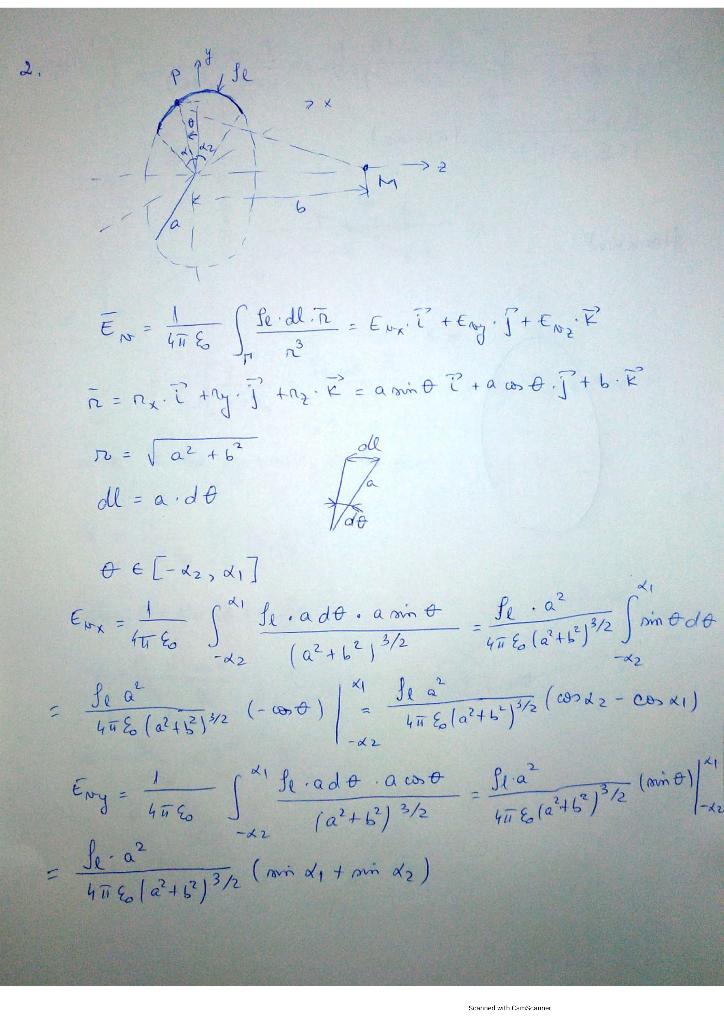 2.
P
y
ρℓ
x
θ
α1
α2
z
M
b
a
Ēv = 1/(4πε₀) ∫Γ (ρℓ·dl·r̄)/r³ = Evx·i⃗ + Evy·j⃗ + Evz·k⃗
r̄ = rx·i⃗ + ry·j⃗ + rz·k⃗ = a sinθ i⃗ + a cosθ·j⃗ + b·k⃗
r = √(a² + b²)
dl
a
dθ
dl = a·dθ
θ ∈ [-α₂, α₁]
Evx = 1/(4πε₀) ∫_{-α₂}^{α₁} (ρℓ·a dθ·a sinθ)/(a²+b²)^{3/2} = (ρℓ·a²)/(4πε₀(a²+b²)^{3/2}) ∫_{-α₂}^{α₁} sinθ dθ
= (ρℓ a²)/(4πε₀(a²+b²)^{3/2}) (-cosθ) |_{-α₂}^{α₁} = (ρℓ a²)/(4πε₀(a²+b²)^{3/2}) (cosα₂ - cosα₁)
Evy = 1/(4πε₀) ∫_{-α₂}^{α₁} (ρℓ·a dθ·a cosθ)/(a²+b²)^{3/2} = (ρℓ·a²)/(4πε₀(a²+b²)^{3/2}) (sinθ) |_{-α₂}^{α₁}
= (ρℓ·a²)/(4πε₀(a²+b²)^{3/2}) (sin α₁ + sin α₂)
Scanned with CamScanner